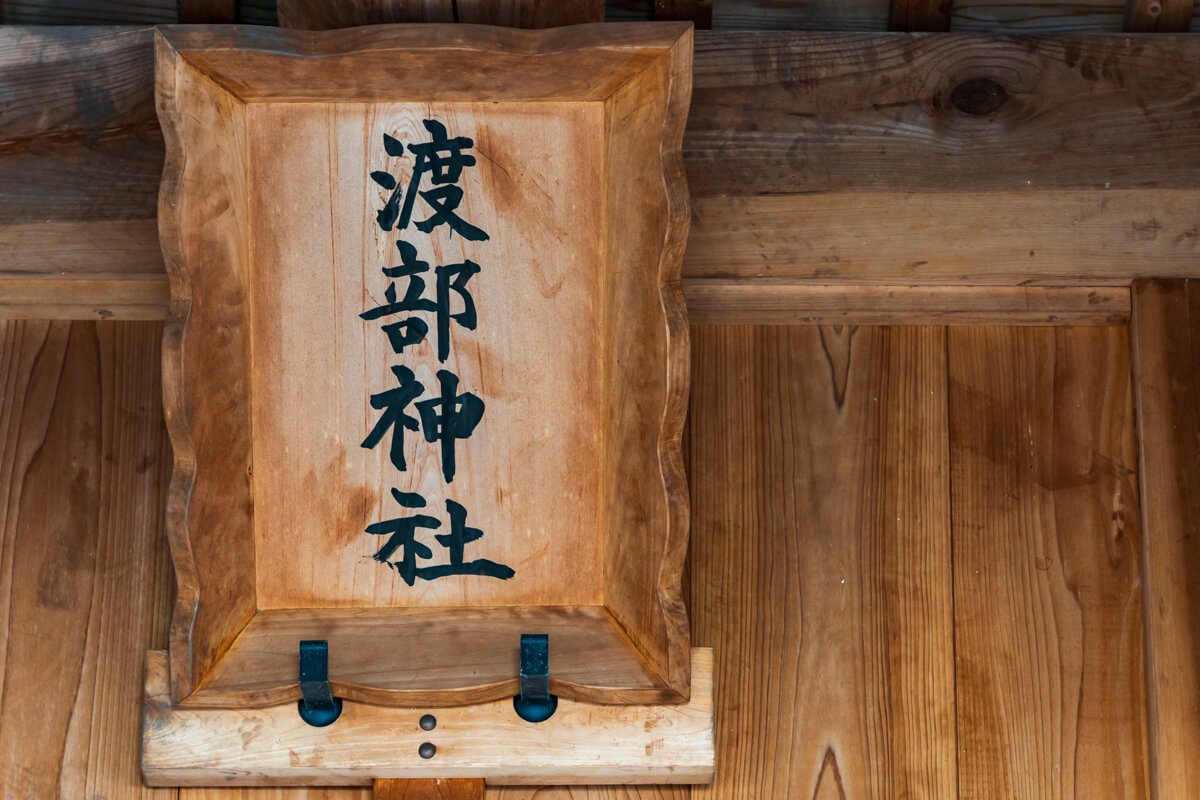 渡部神社